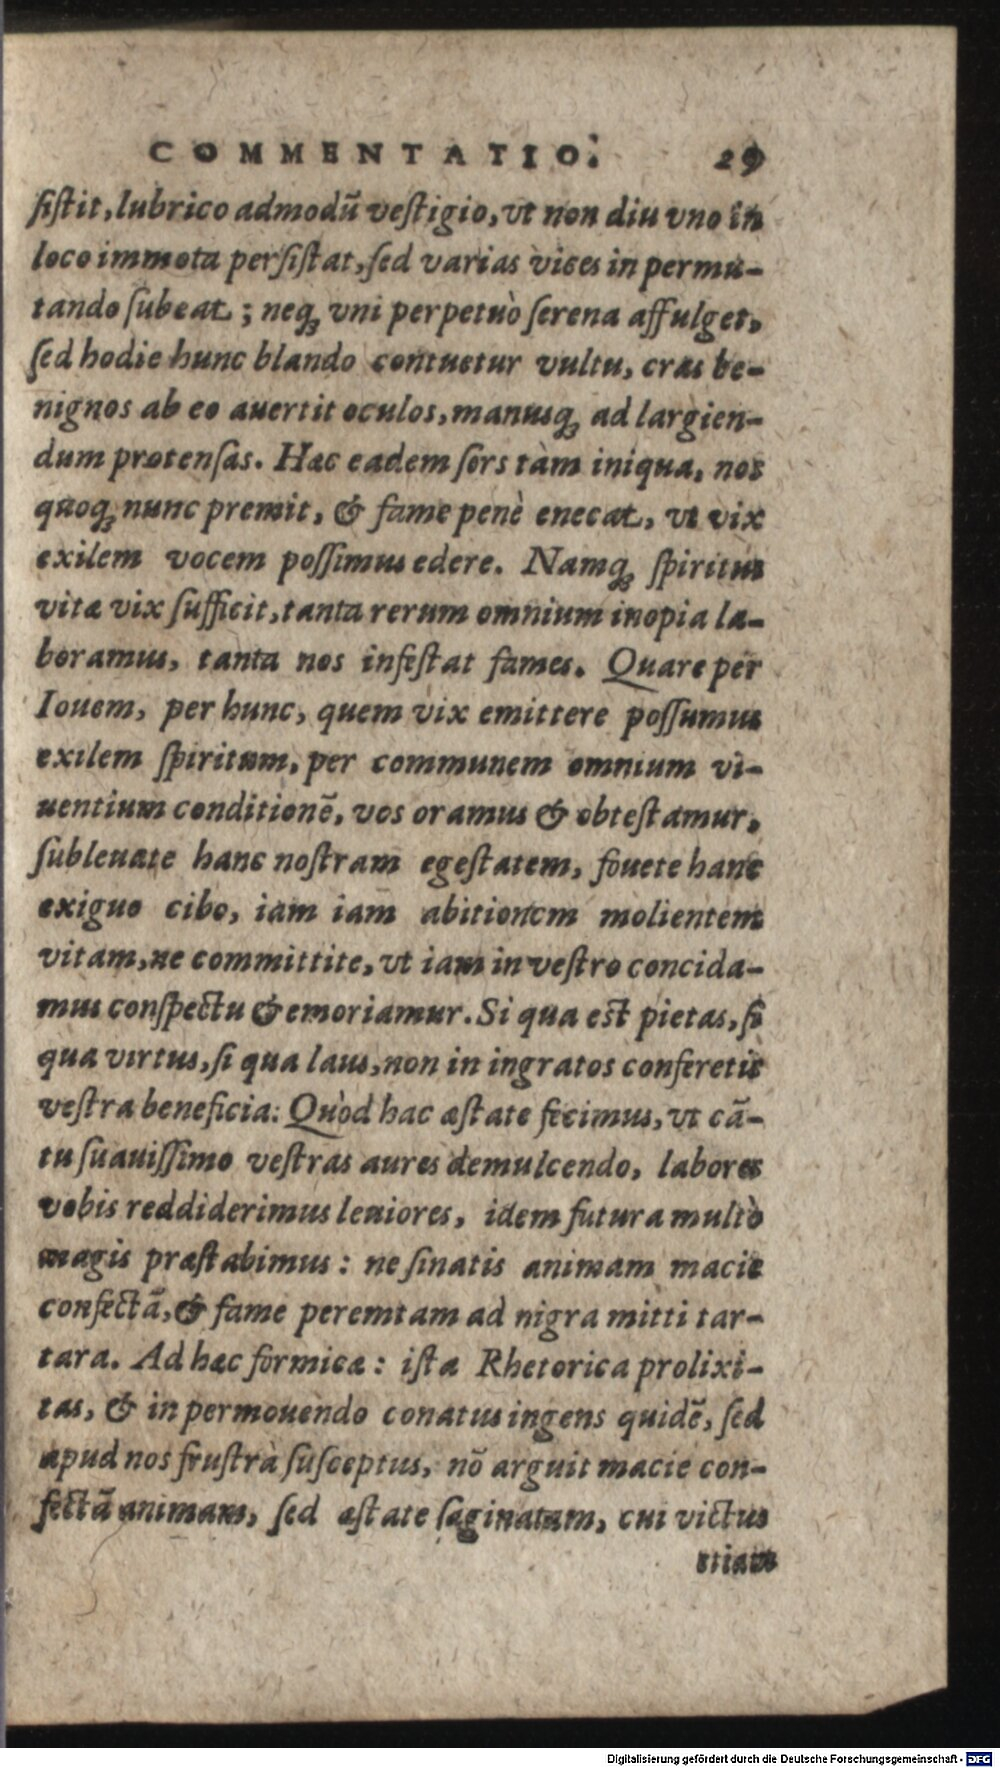 COMMENTATIO. 29
ſiſtit, lubrico admodū veſtigio, vt non diu vno in
loco immota perſiſtat, ſed varias vices in permu-
tando ſubeat; neq; vni perpetuò ſerena affulget,
ſed hodie hunc blando contuetur vultu, cras be-
nignos ab eo auertit oculos, manusq; ad largien-
dum protenſas. Hæc eadem ſors tàm iniqua, nos
quoq; nunc premit, & fame penè enecat, vt vix
exilem vocem poſſimus edere. Namq; ſpiritus
vitæ vix ſufficit, tanta rerum omnium inopia la-
boramus, tanta nos infeſtat fames. Quare per
Iouem, per hunc, quem vix emittere poſſumus
exilem ſpiritum, per communem omnium vi-
uentium conditionē, vos oramus & obteſtamur,
ſubleuate hanc noſtram egeſtatem, fouete hanc
exiguo cibo, iam iam abitionem molientem
vitam, ne committite, vt iam in veſtro concida-
mus conſpectu & emoriamur. Si qua eſt pietas, ſi
qua virtus, ſi qua laus, non in ingratos conferetis
veſtra beneficia: Quòd hac æſtate fecimus, vt cā-
tu ſuauiſſimo veſtras aures demulcendo, labores
vobis reddiderimus leuiores, idem futura multò
magis præſtabimus: ne ſinatis animam macie
confectā, & fame peremtam ad nigra mitti tar-
tara. Ad hæc formicæ: iſta Rhetorica prolixi-
tas, & in permouendo conatus ingens quidē, ſed
apud nos fruſtrà ſuſceptus, nō arguit macie con-
fectā animam, ſed æſtate ſaginatam, cui victus
etiam
Digitalisierung gefördert durch die Deutsche Forschungsgemeinschaft - DFG